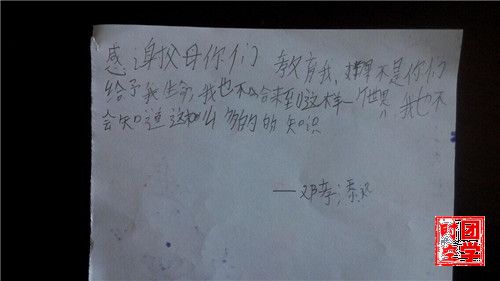 感谢父母你们 教育我,不是你们
给予我生命,我也不会来到这样一个世界,我也不
会知道这么多的的知识
——邓